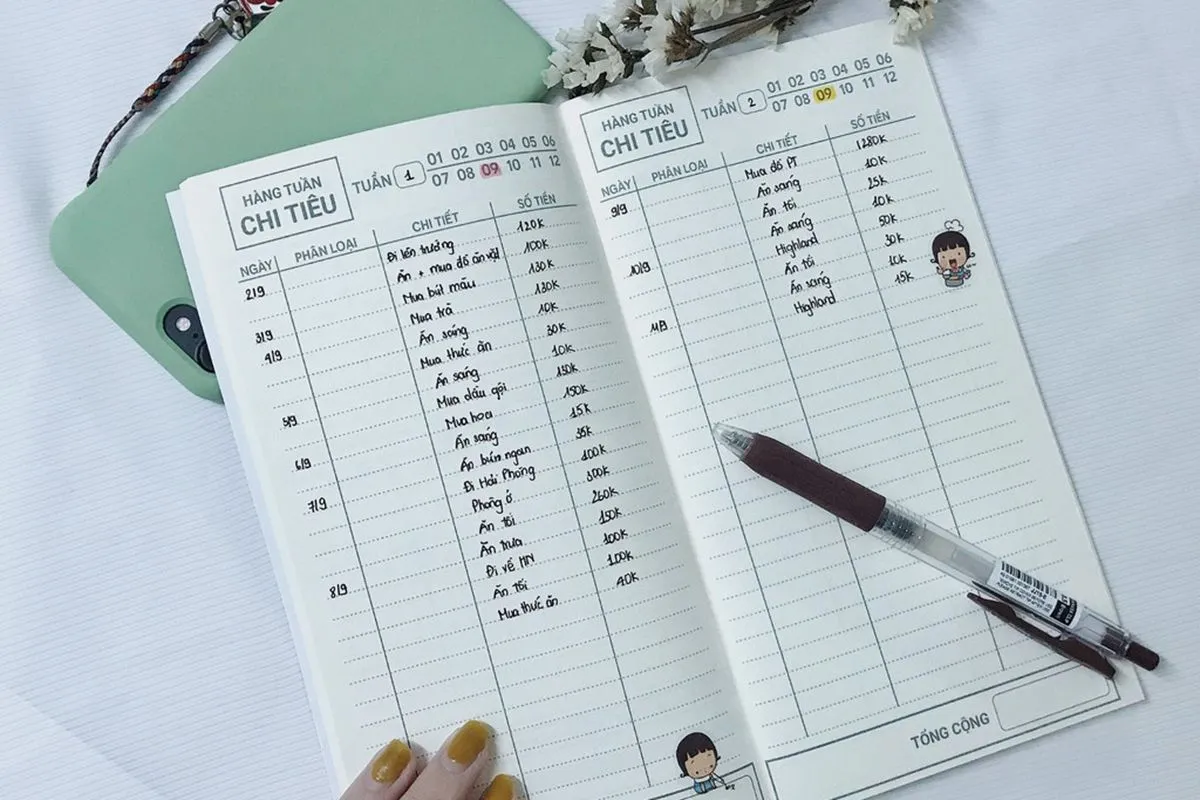 HÀNG TUẦN
CHI TIÊU
TUẦN 1
01 02 03 04 05 06
07 08 09 10 11 12
NGÀY PHÂN LOẠI CHI TIẾT SỐ TIỀN
2/9 Đi lên trường 120K
Ăn + mua đồ ăn vặt 100K
3/9 Mua bút màu 130K
4/9 Mua trà 130K
Ăn sáng 10K
Mua thức ăn 30K
5/9 Ăn sáng 10K
Mua dầu gội 130K
6/9 Mua hoa 150K
Ăn sáng 15K
7/9 Ăn bún ngan 35K
Đi Hải Phòng 100K
Phòng ở 300K
Ăn tối 260K
8/9 Ăn trưa 150K
Đi về HN 100K
Ăn tối 100K
Mua thức ăn 40K
HÀNG TUẦN
CHI TIÊU
TUẦN 2
01 02 03 04 05 06
07 08 09 10 11 12
NGÀY PHÂN LOẠI CHI TIẾT SỐ TIỀN
9/9 Mua đồ PT 1280K
Ăn sáng 10K
Ăn tối 25K
10/9 Ăn sáng 10K
Highland 50K
Ăn tối 30K
11/9 Ăn sáng 10K
Highland 15K
TỔNG CỘNG